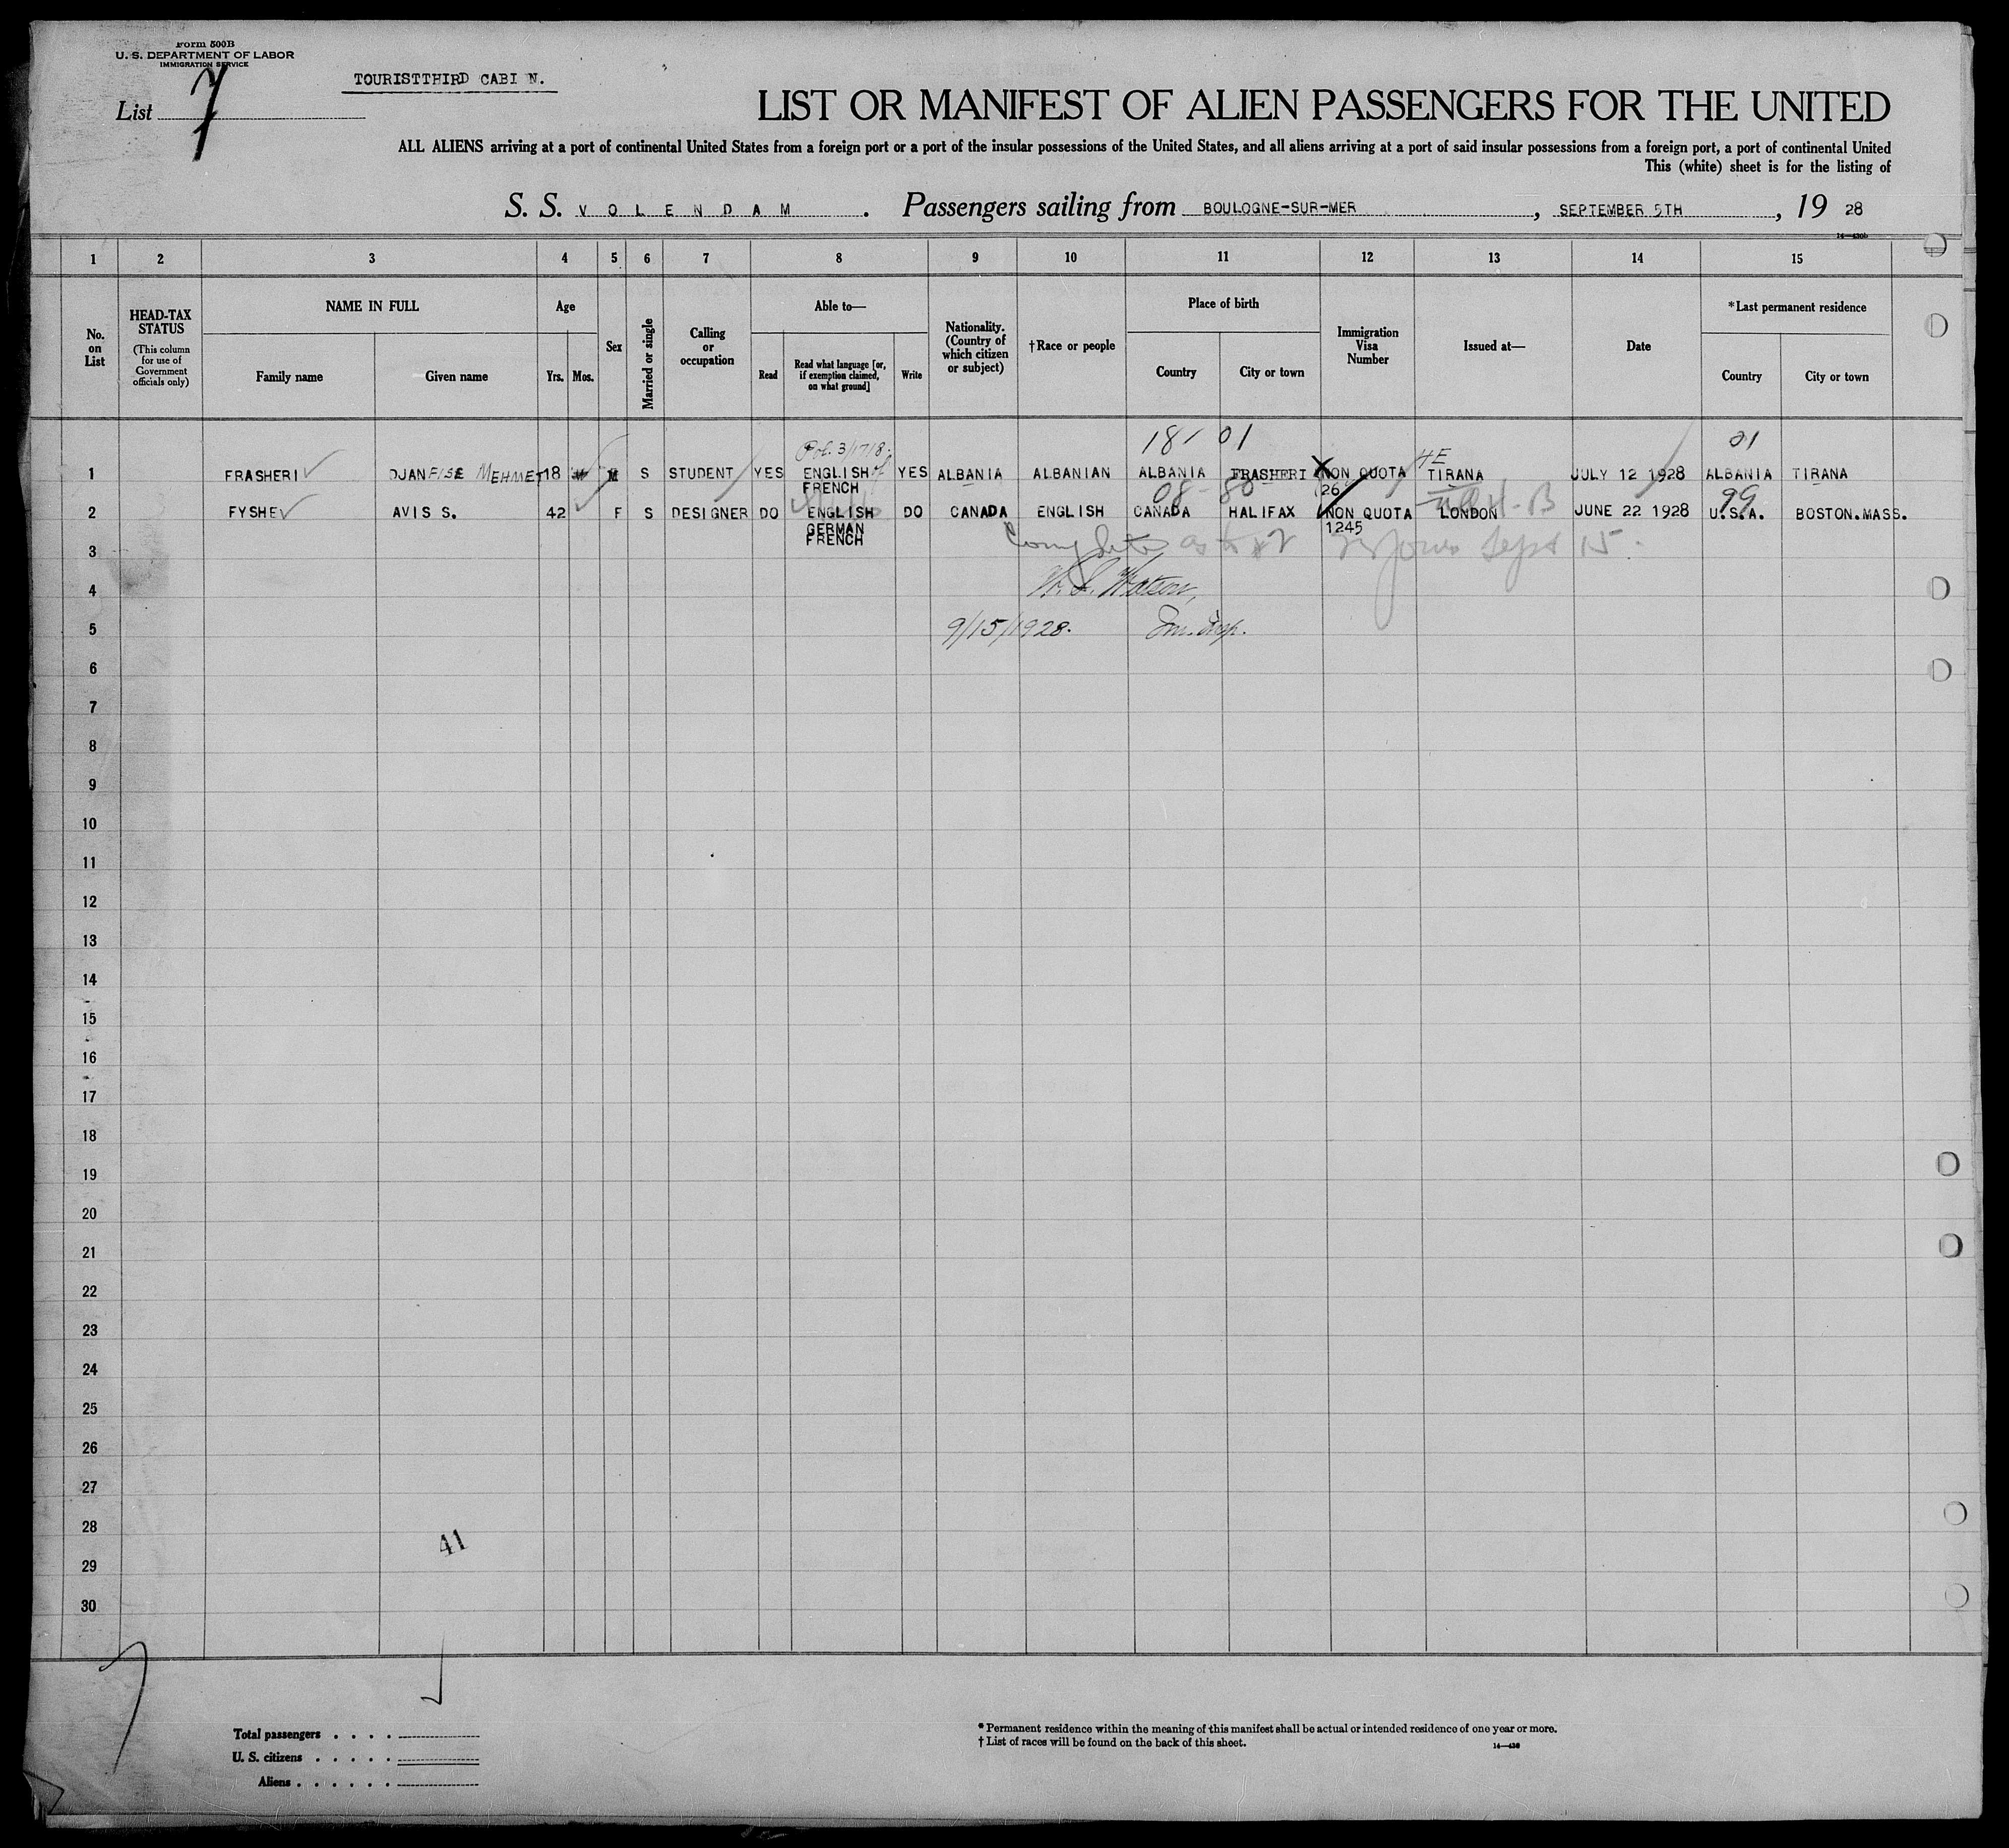 Form 500B
U. S. DEPARTMENT OF LABOR
IMMIGRATION SERVICE
TOURISTTHIRD CABI N.
List 7
LIST OR MANIFEST OF ALIEN PASSENGERS FOR THE UNITED
ALL ALIENS arriving at a port of continental United States from a foreign port or a port of the insular possessions of the United States, and all aliens arriving at a port of said insular possessions from a foreign port, a port of continental United
This (white) sheet is for the listing of
S. S. VOLENDAM. Passengers sailing from BOULOGNE-SUR-MER, SEPTEMBER 5TH, 19 28
1 2 3 4 5 6 7 8 9 10 11 12 13 14 15
No. on List
HEAD-TAX STATUS (This column for use of Government officials only)
NAME IN FULL
Family name
Given name
Age
Yrs. Mos.
Sex
Married or single
Calling or occupation
Able to—
Read
Read what language [or, if exemption claimed, on what ground]
Write
Nationality. (Country of which citizen or subject)
†Race or people
Place of birth
Country
City or town
Immigration Visa Number
Issued at—
Date
*Last permanent residence
Country
City or town
18 01 01
1 FRASHERI DJANFISE MEHMET 18 S STUDENT YES ENGLISH YES ALBANIA ALBANIAN ALBANIA FRASHERI NON QUOTA 4E TIRANA JULY 12 1928 ALBANIA TIRANA
FRENCH 26
08 80 99
2 FYSHE AVIS S. 42 F S DESIGNER DO ENGLISH DO CANADA ENGLISH CANADA HALIFAX NON QUOTA LONDON JUNE 22 1928 U.S.A. BOSTON.MASS.
GERMAN 1245
FRENCH
3 Complete as to #2 Sept 15
4 Watson,
5 9/15/1928. Im. Insp.
6
7
8
9
10
11
12
13
14
15
16
17
18
19
20
21
22
23
24
25
26
27
28
41
29
30
Total passengers
U. S. citizens
Aliens
* Permanent residence within the meaning of this manifest shall be actual or intended residence of one year or more.
† List of races will be found on the back of this sheet.
14—430